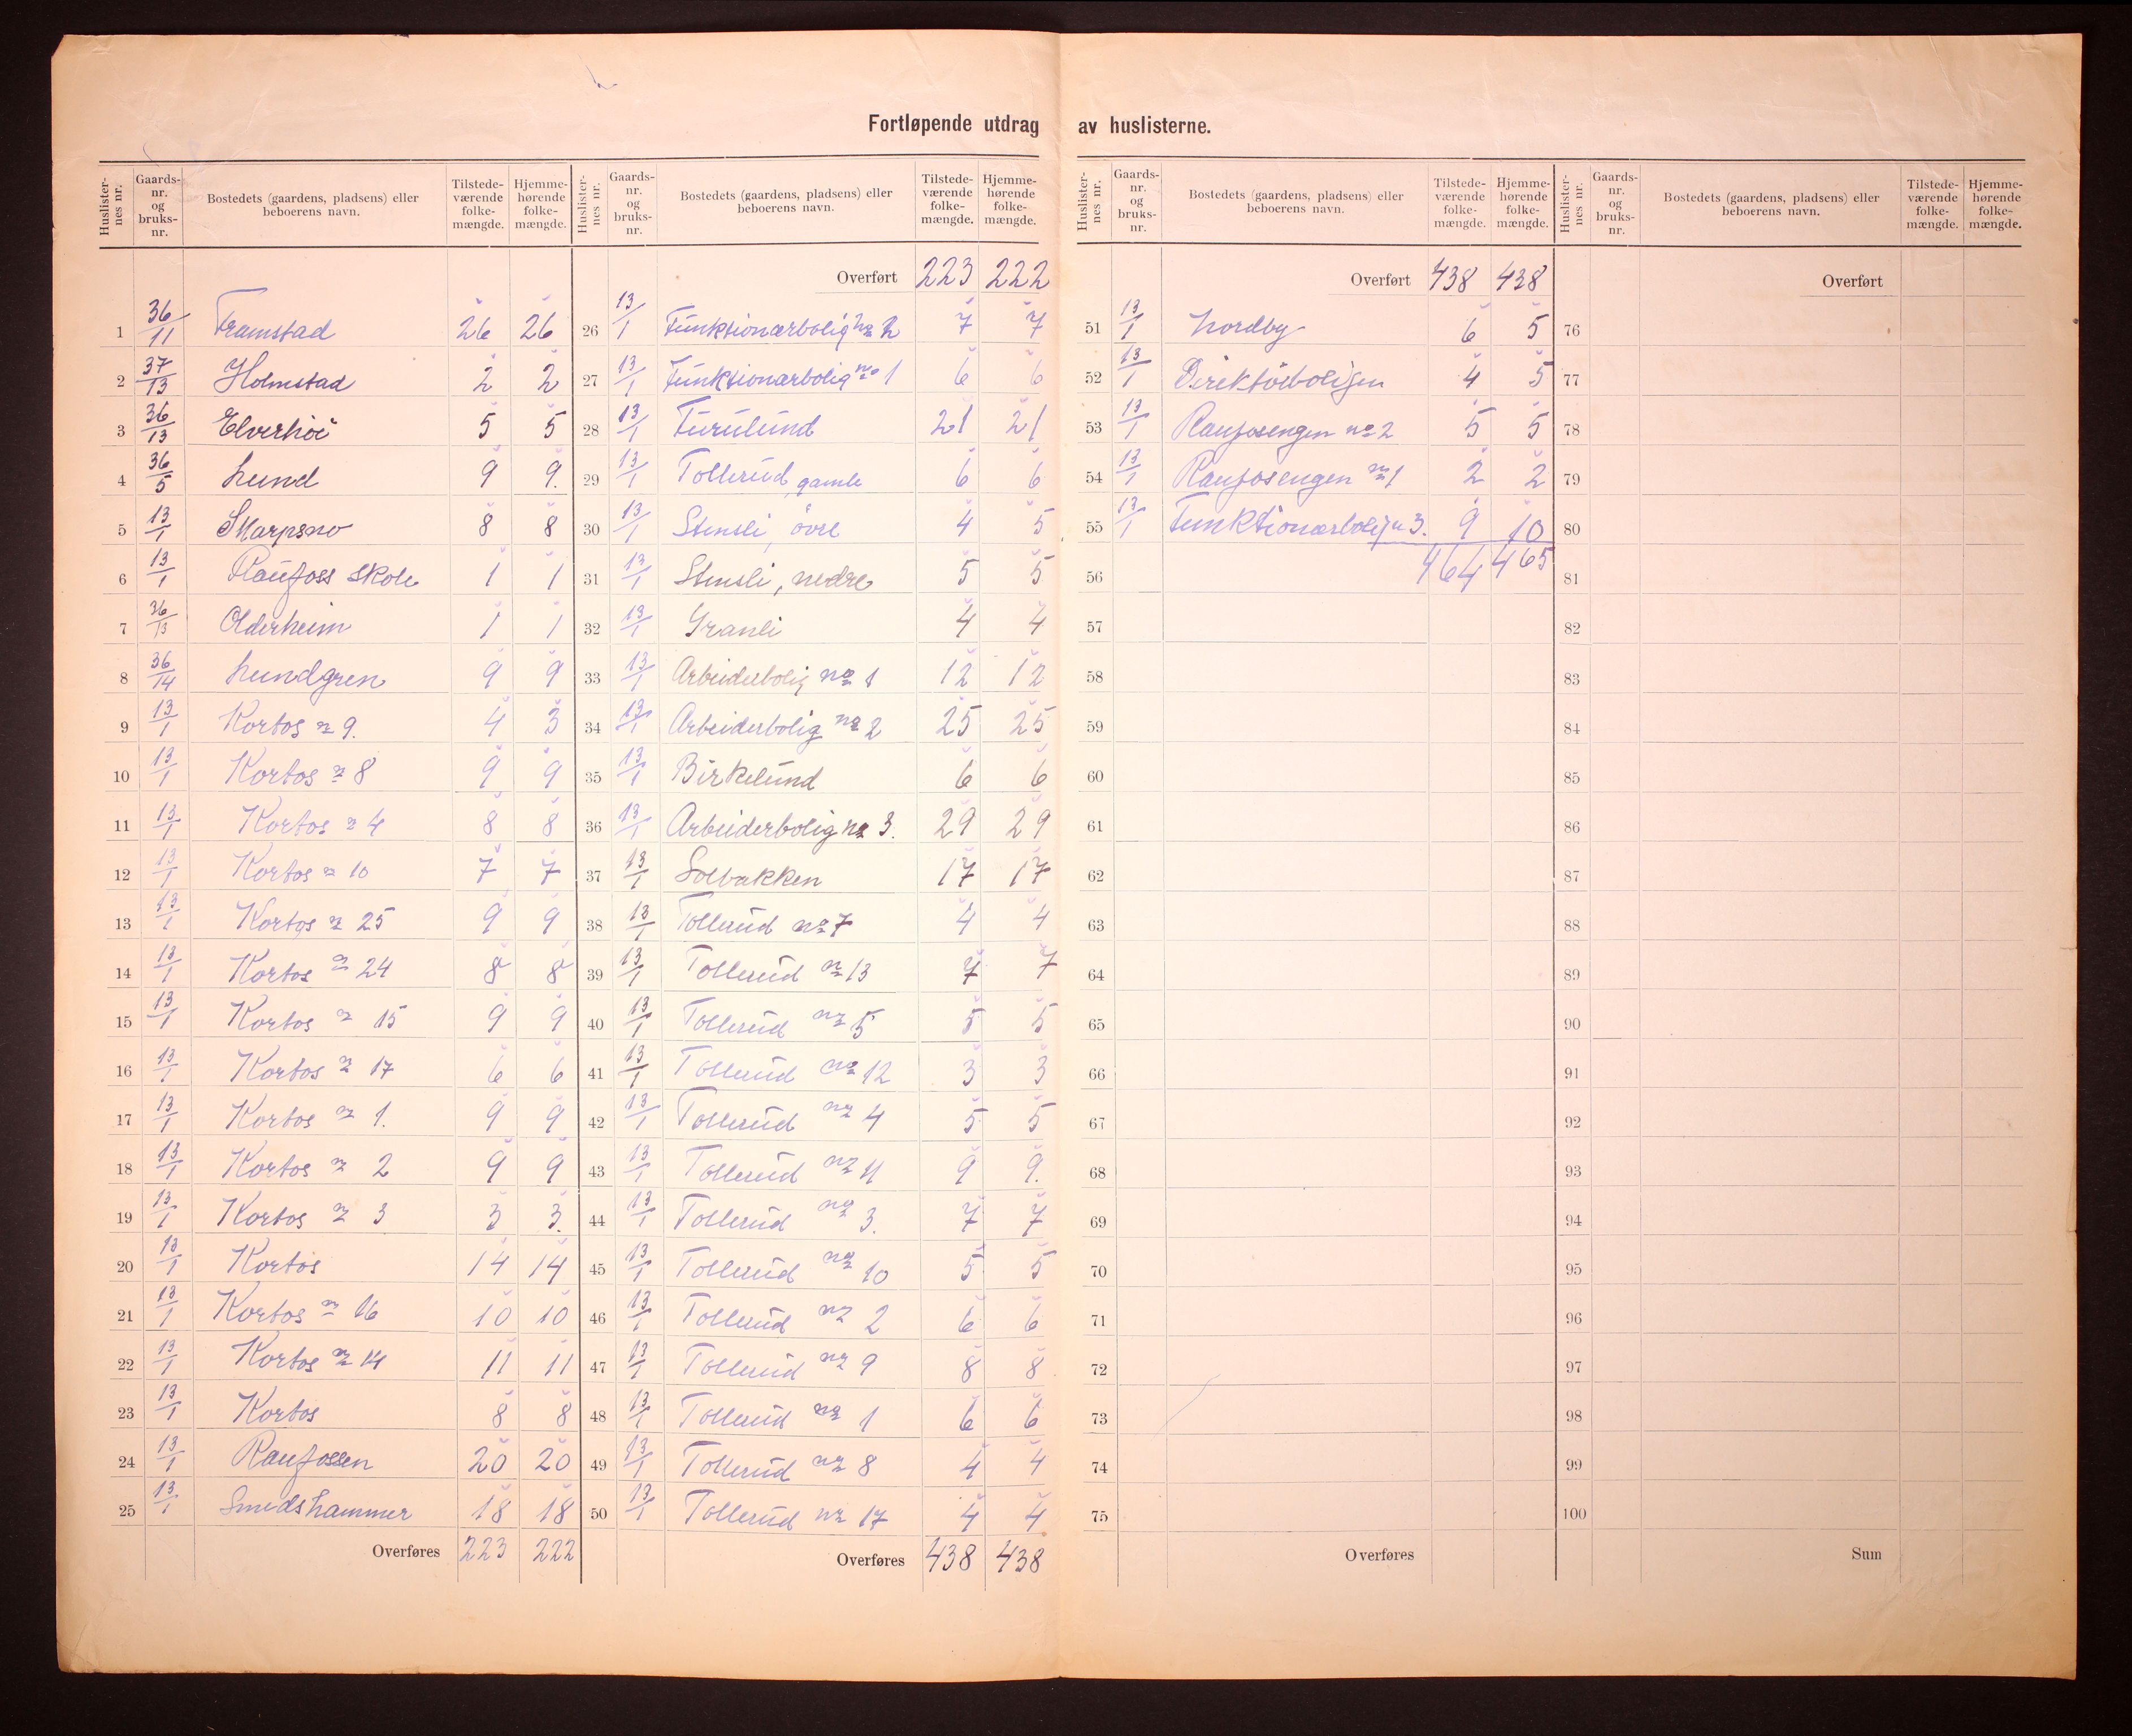 Fortløpende utdrag av huslisterne.
Huslister- nes nr. | Gaards- nr. og bruks- nr. | Bostedets (gaardens, pladsens) eller beboerens navn. | Tilstede- værende folke- mængde. | Hjemme- hørende folke- mængde.
1 36/11 Framstad 26 26
2 37/13 Holmstad 2 2
3 36/13 Elverhöi 5 5
4 36/5 Lund 9 9.
5 13/1 Skarpsno 8 8
6 13/1 Raufoss skole 1 1
7 36/13 Olderheim 1 1
8 36/14 Lundgren 9 9
9 13/1 Kortos nr 9. 4 3
10 13/1 Kortos nr 8 9 9
11 13/1 Kortos nr 4 8 8
12 13/1 Kortos nr 10 7 7
13 13/1 Kortos nr 25 9 9
14 13/1 Kortos nr 24 8 8
15 13/1 Kortos nr 15 9 9
16 13/1 Kortos nr 17 6 6
17 13/1 Kortos nr 1. 9 9
18 13/1 Kortos nr 2 9 9
19 13/1 Kortos nr 3 3 3.
20 13/1 Kortos 14 14
21 13/1 Kortos nr 16 10 10
22 13/1 Kortos nr 14 11 11
23 13/1 Kortos 8 8
24 13/1 Raufossen 20 20
25 13/1 Smedshammer 18 18
Overføres 223 222
Huslister- nes nr. | Gaards- nr. og bruks- nr. | Bostedets (gaardens, pladsens) eller beboerens navn. | Tilstede- værende folke- mængde. | Hjemme- hørende folke- mængde.
Overført 223 222
26 13/1 Funktionærbolig no 2 7 7
27 13/1 Funktionærbolig no 1 6 6
28 13/1 Furulund 21 21
29 13/1 Tollerud, gamle 6 6
30 13/1 Stensli, övre 4 5
31 13/1 Stensli, nedre 5 5
32 13/1 Granli 4 4
33 13/1 Arbeiderbolig no 1 12 12
34 13/1 Arbeiderbolig no 2 25 25
35 13/1 Birkelund 6 6
36 13/1 Arbeiderbolig no 3. 29 29
37 13/1 Solbakken 17 17
38 13/1 Tollerud no 7 4 4
39 13/1 Tollerud nr 13 7 7
40 13/1 Tollerud nr 5 5 5
41 13/1 Tollerud no 12 3 3
42 13/1 Tollerud nr 4 5 5
43 13/1 Tollerud nr 11 9 9.
44 13/1 Tollerud no 3. 7 7
45 13/1 Tollerud no 10 5 5
46 13/1 Tollerud nr 2 6 6
47 13/1 Tollerud nr 9 8 8
48 13/1 Tollerud no 1 6 6
49 13/1 Tollerud nr 8 4 4
50 13/1 Tollerud nr 17 4 4
Overføres 438 438
Huslister- nes nr. | Gaards- nr. og bruks- nr. | Bostedets (gaardens, pladsens) eller beboerens navn. | Tilstede- værende folke- mængde. | Hjemme- hørende folke- mængde.
Overført 438 438
51 13/1 Nordby 6 5
52 13/1 Direktörboligen 4 5
53 13/1 Raufosengen no 2 5 5
54 13/1 Raufosengen no 1 2 2
55 13/1 Funktionærbolig n 3. 9 10
56 464 465
57
58
59
60
61
62
63
64
65
66
67
68
69
70
71
72
73
74
75
Overføres
Huslister- nes nr. | Gaards- nr. og bruks- nr. | Bostedets (gaardens, pladsens) eller beboerens navn. | Tilstede- værende folke- mængde. | Hjemme- hørende folke- mængde.
Overført
76
77
78
79
80
81
82
83
84
85
86
87
88
89
90
91
92
93
94
95
96
97
98
99
100
Sum